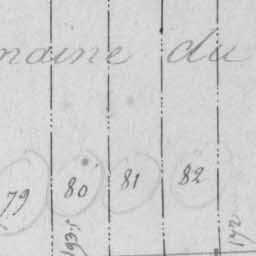 maine du
79 80 81 82
193
142